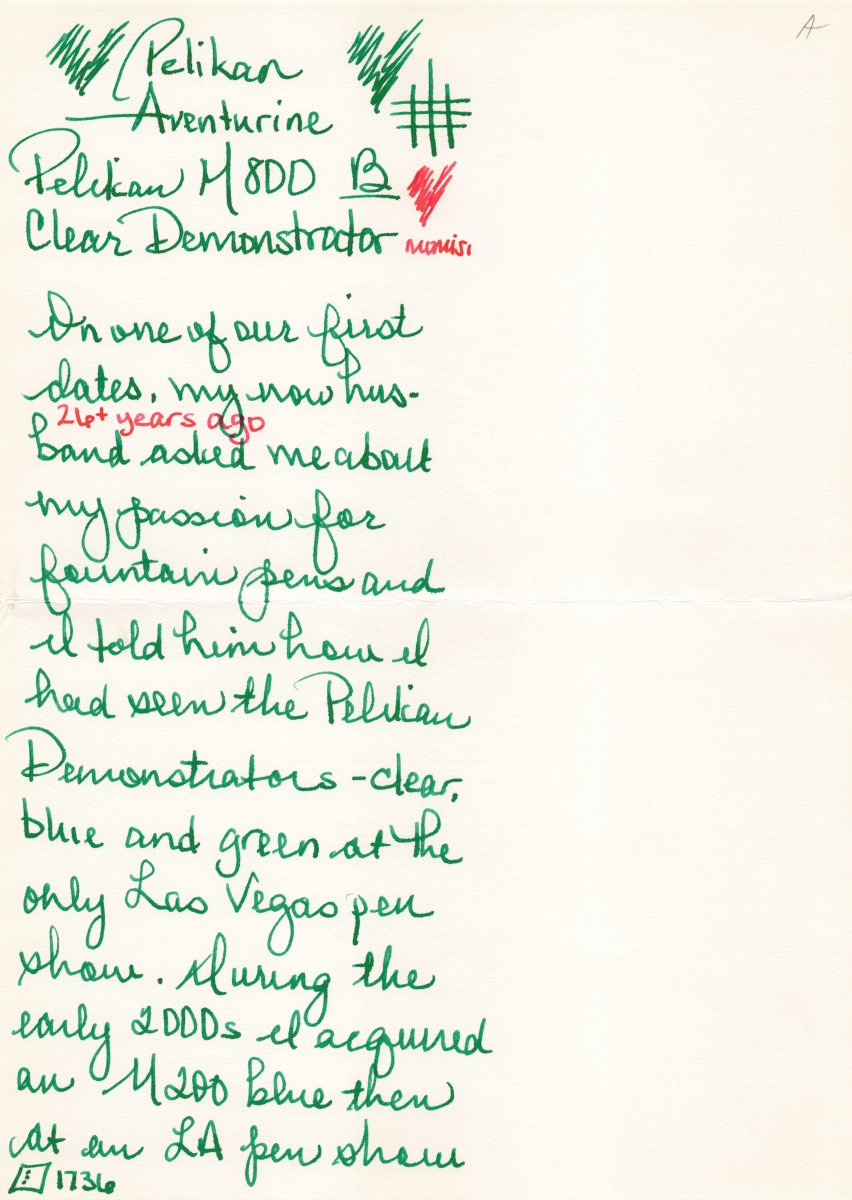 A
Pelikan
Aventurine
Pelikan M800 B
Clear Demonstrator
On one of our first
dates, my now hus-
26+ years ago
band asked me about
my passion for
fountain pens and
I told him how I
had seen the Pelikan
Demonstrators - clear,
blue and green at the
only Las Vegas pen
show. During the
early 2000s I acquired
an M200 blue then
at an LA pen show
1736